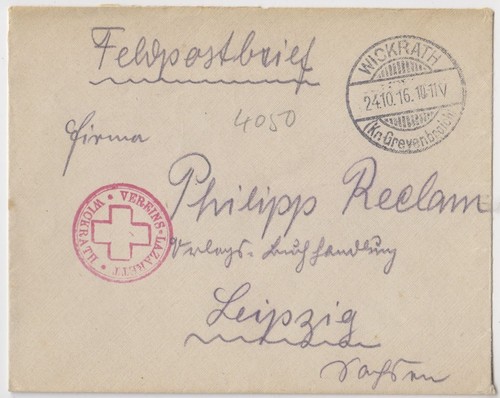 Feldpostbrief
WICKRATH
24.10.16.10-11V
(Kr. Grevenbroich)
4050
Firma
Philipp Reclam
Verlags-Buchhandlung
Leipzig
Sachsen
VEREINS-LAZARETT * WICKRATH *